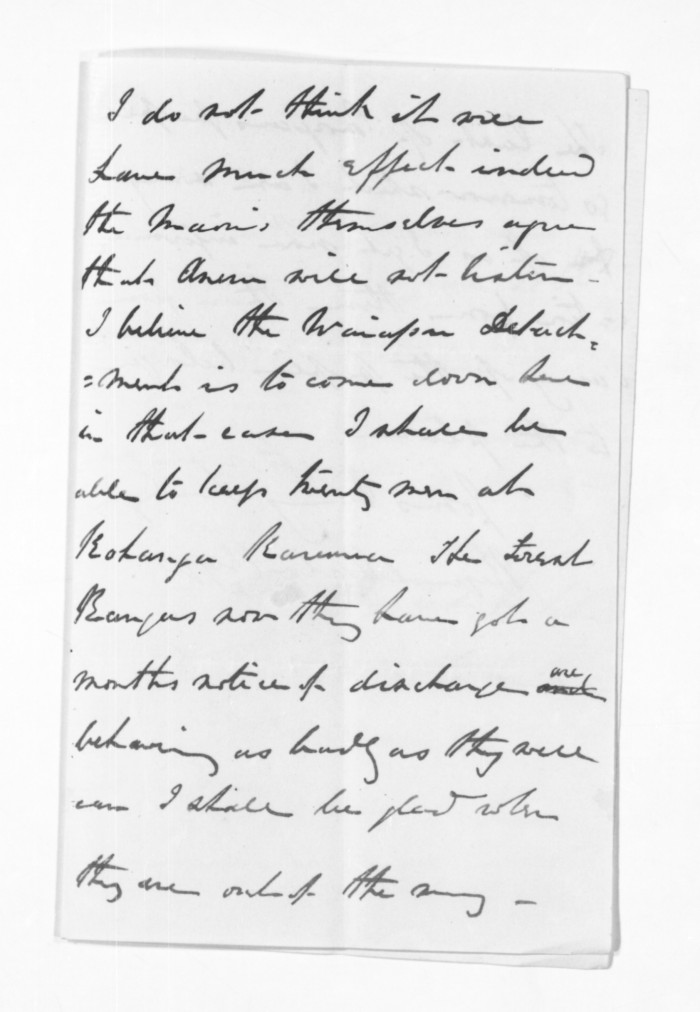 I do not think it will
have much effect indeed
the Maoris themselves agree
that Aneru will not listen -
I believe the Wairapu Detach=
=ment is to come down here
in that case I shall be
able to keep twenty men at
Kohanga Karumea The Forest
Rangers now they have got a
months notice of discharge are
behaving as badly as they well
can I shall be glad when
they are out of the way -